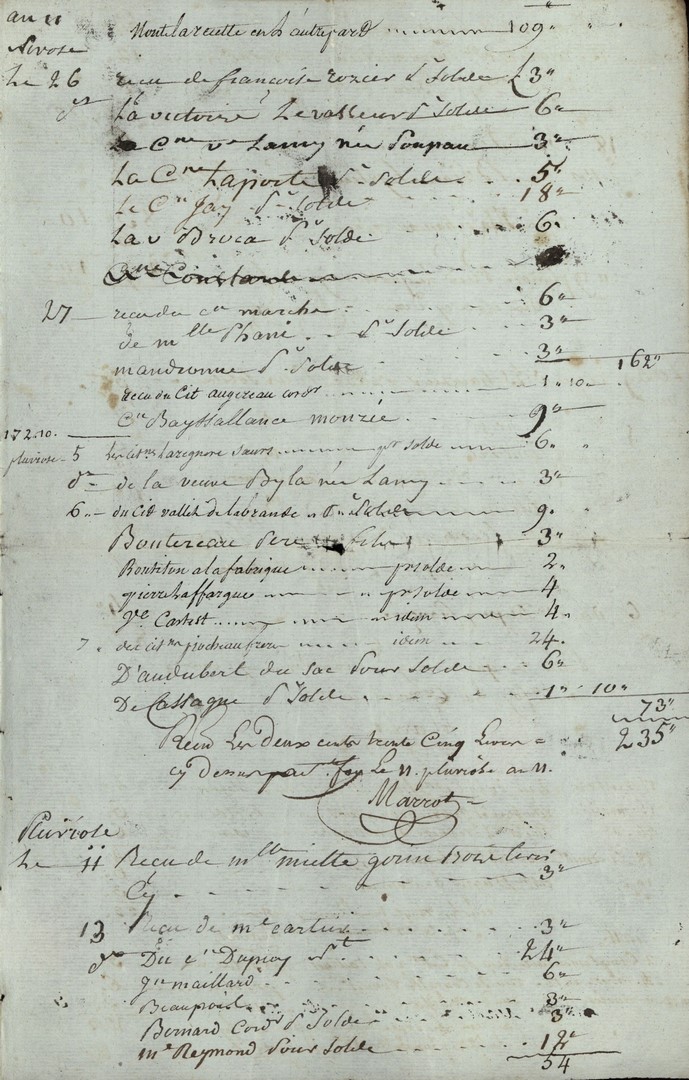 an 11 Montant de la recette en l'autre part 109"
Nivose
Le 26 recu de francoise rozier pr Solde £ 3"
do La victoire Levasseur pr Solde 6"
La Cne ve Lamy née Soupau 3"
La Cne Laporte pr Solde 5"
Le Cn Jay pr Solde 18"
La v Broca pr Solde 6"
Cne Constande
27 recu du cn marche 6"
de mlle Phani pr Solde 3"
mandronne pr Solde 3" 162"
recu du Cit augereau cordr 1" 10"
Cn Bayssallance monzie 9"
172.10.
pluviose 5 les citnes Lazegnore Sœurs pr Solde 6"
do de la veuve Byla née Lamy 3"
6 du Cit vallet de labrande pr Solde 9"
Boutereau Pere 3"
Boutiton a la fabrique pr solde 2"
pierre Laffargue pr solde 4
ve Castest idem 4"
7 des citns piocheau freres idem 24"
D'audubert du sac pour Solde 6"
De Cassaque pr Solde 1" 10"
73"
235"
Recu Les Deux cents trente Cinq Livres
cy Dessus Le 11 pluviose an 11.
Marrot
Pluviose
Le 11 Recu de mlle miette gorin trois livres
Cy 3"
13 Recu de me cartier 3"
do Du cn Dupuy pt 24"
maillard 6"
Beaupoil 3"
Bernard Cordr pr Solde 3"
me Reymond pour Solde 12"
54